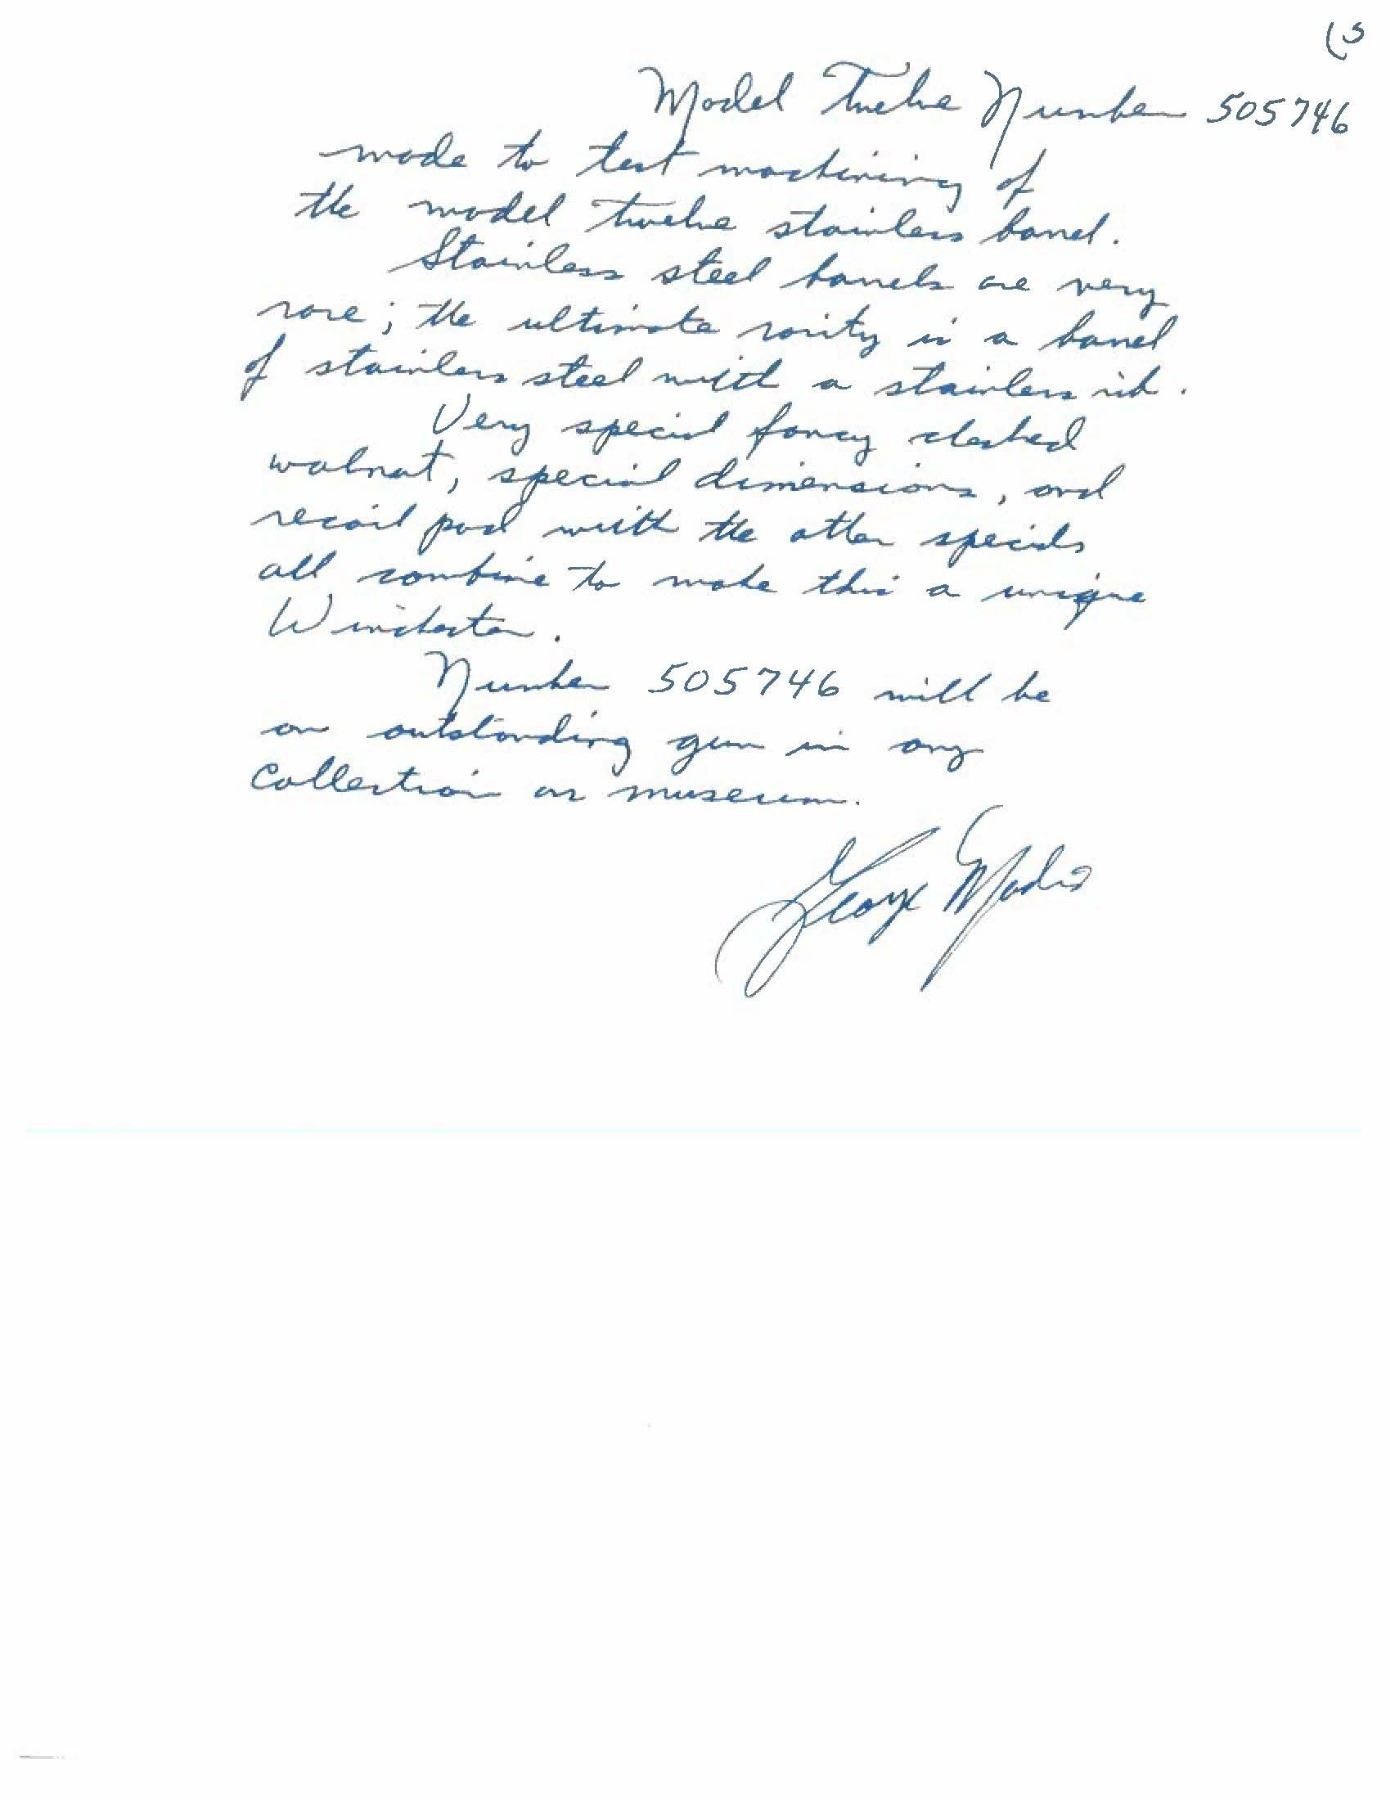 (5
Model Twelve Number 505746
made to test machining of
the model twelve stainless barrel.
Stainless steel barrels are very
rare; the ultimate rarity is a barrel
of stainless steel with a stainless rib.
Very special fancy checked
walnut, special dimensions, and
recoil pad with the other specials
all combine to make this a unique
Winchester.
Number 505746 will be
an outstanding gun in any
Collection or museum.
George Madis